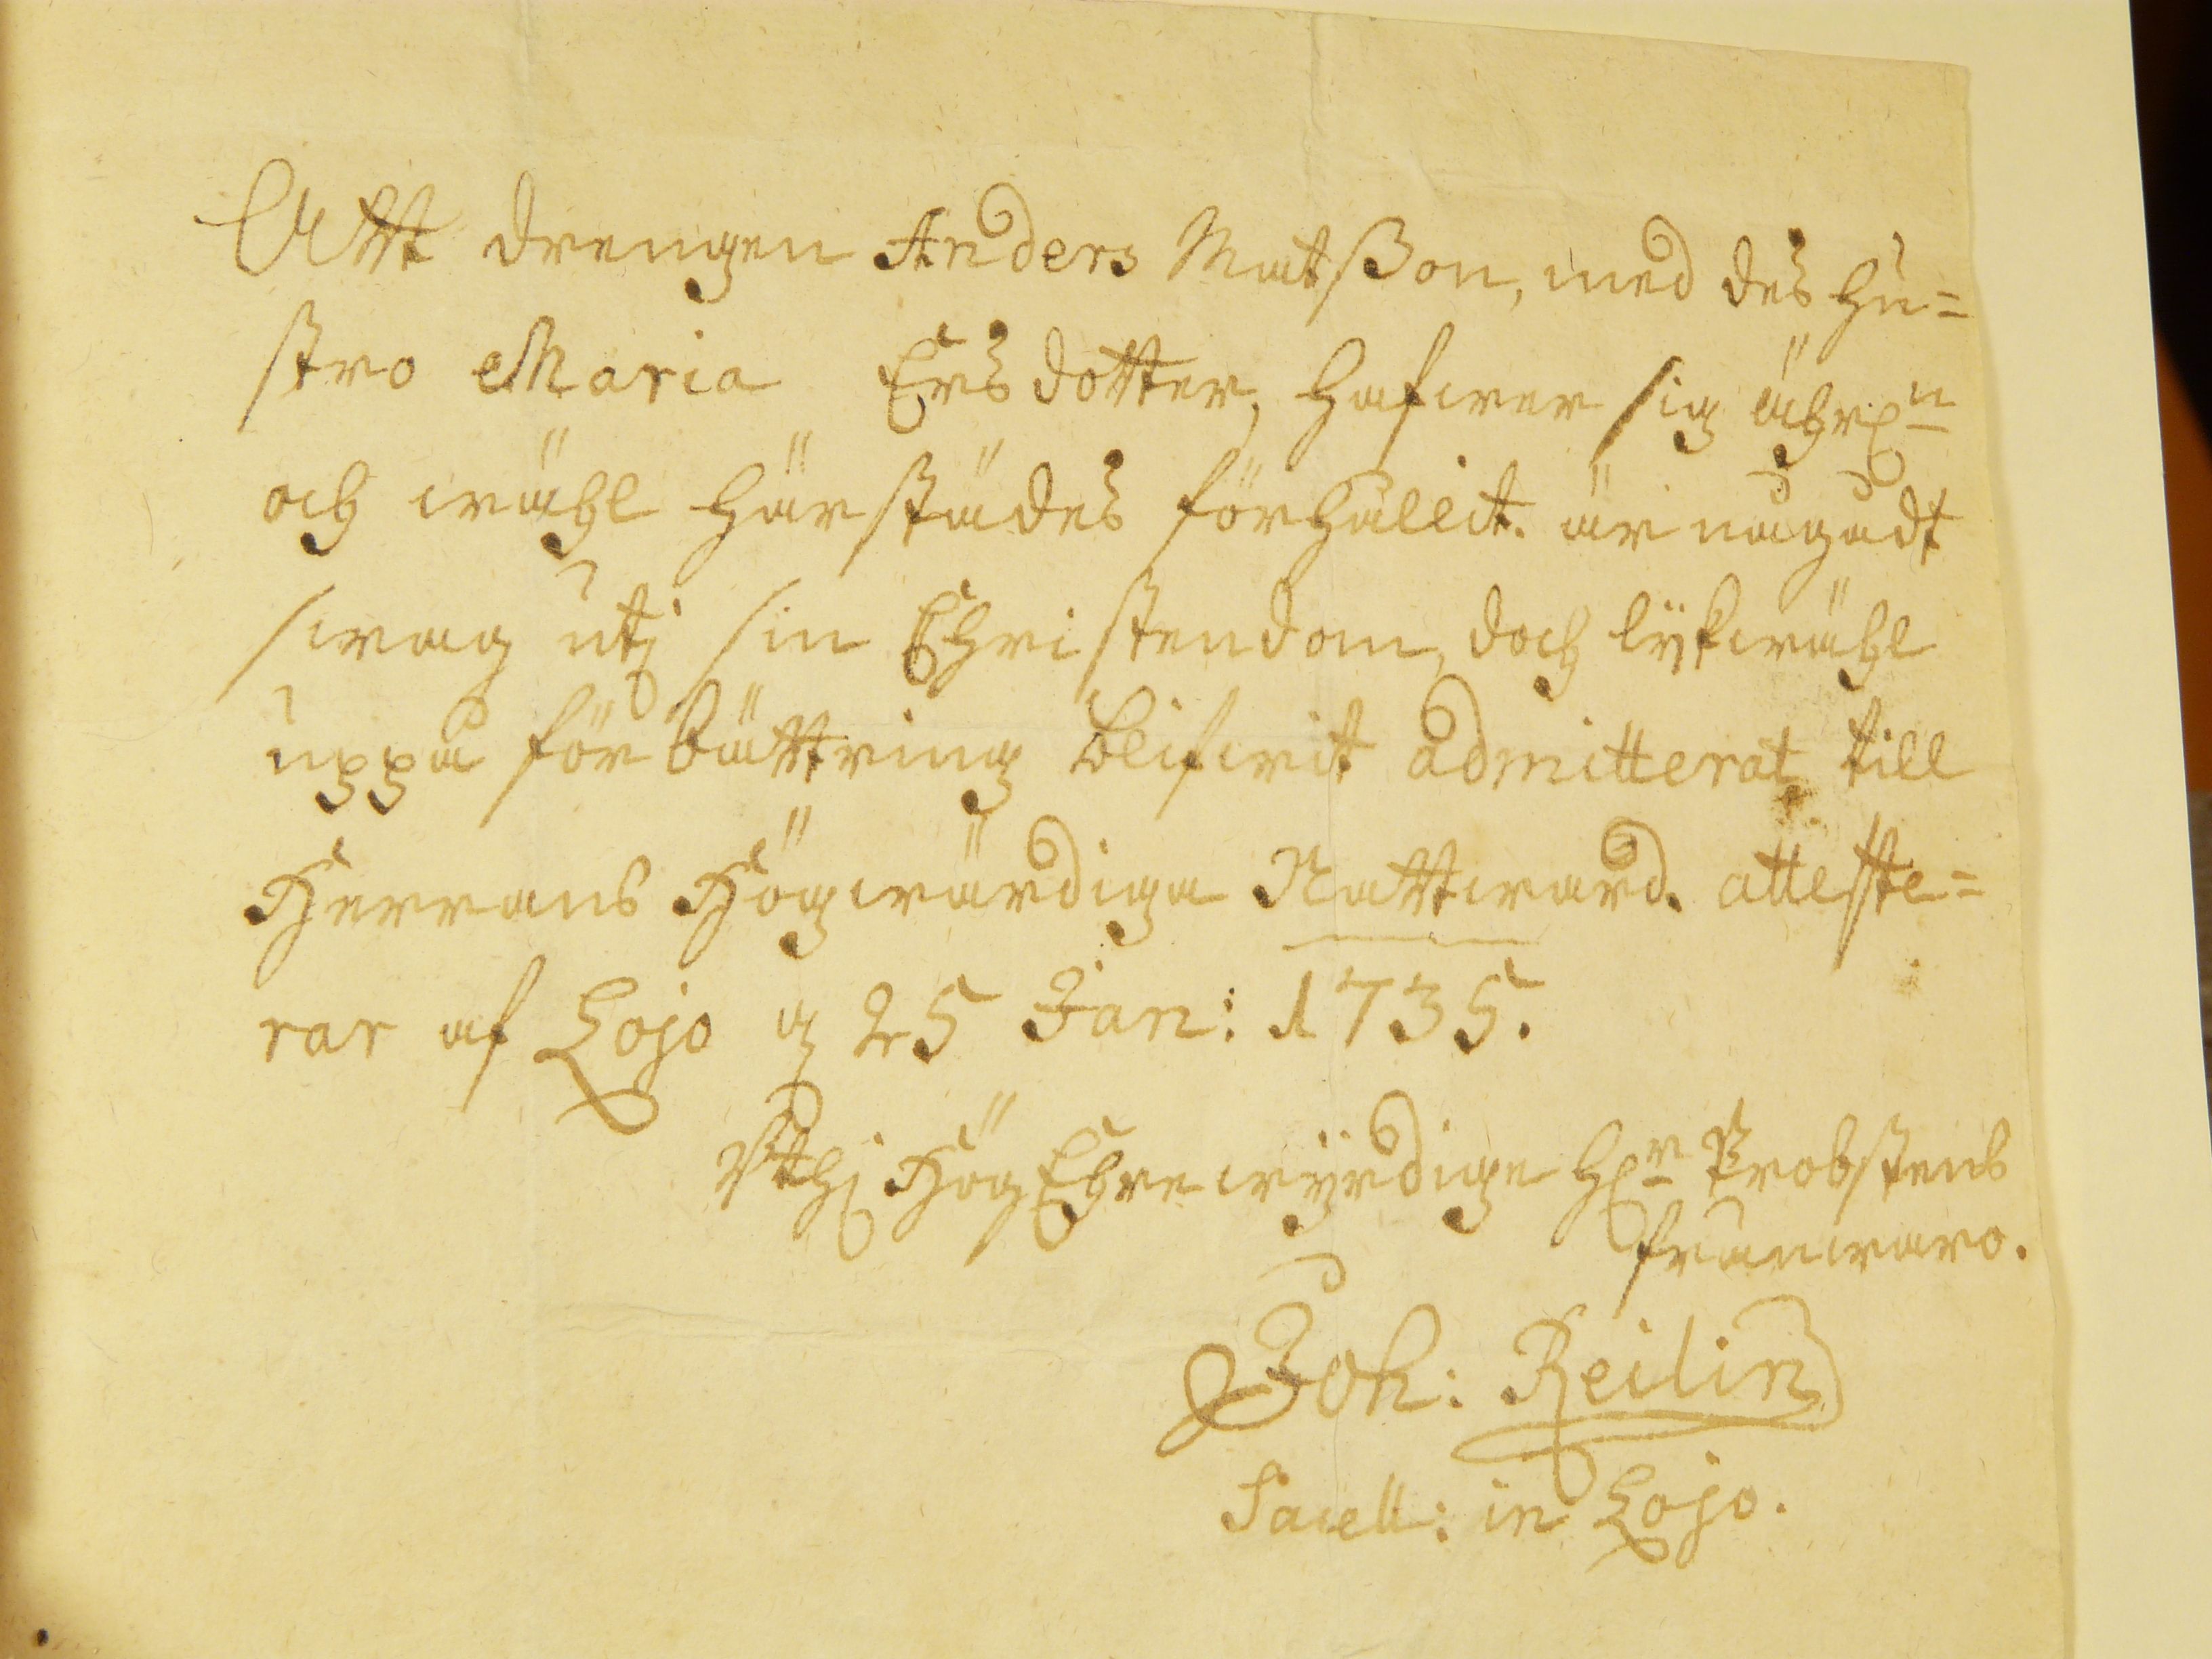 Att drengen Anders Matßon, med des hu=
stro Maria Ersdotter, hafwer sig ährl:n
och wähl härstädes förhållit. är någådt
swag utj sin Christendom, doch lijkwähl
uppå förbättring blifwit admitterat till
Herrans Högwärdiga Nattward. atteste=
rar af Lojo d 25 Jan: 1735.
Uthj HögEhrewÿrdige H:r Probstens
frånwaro.
Joh: Reilin
Sacell: in Lojo.